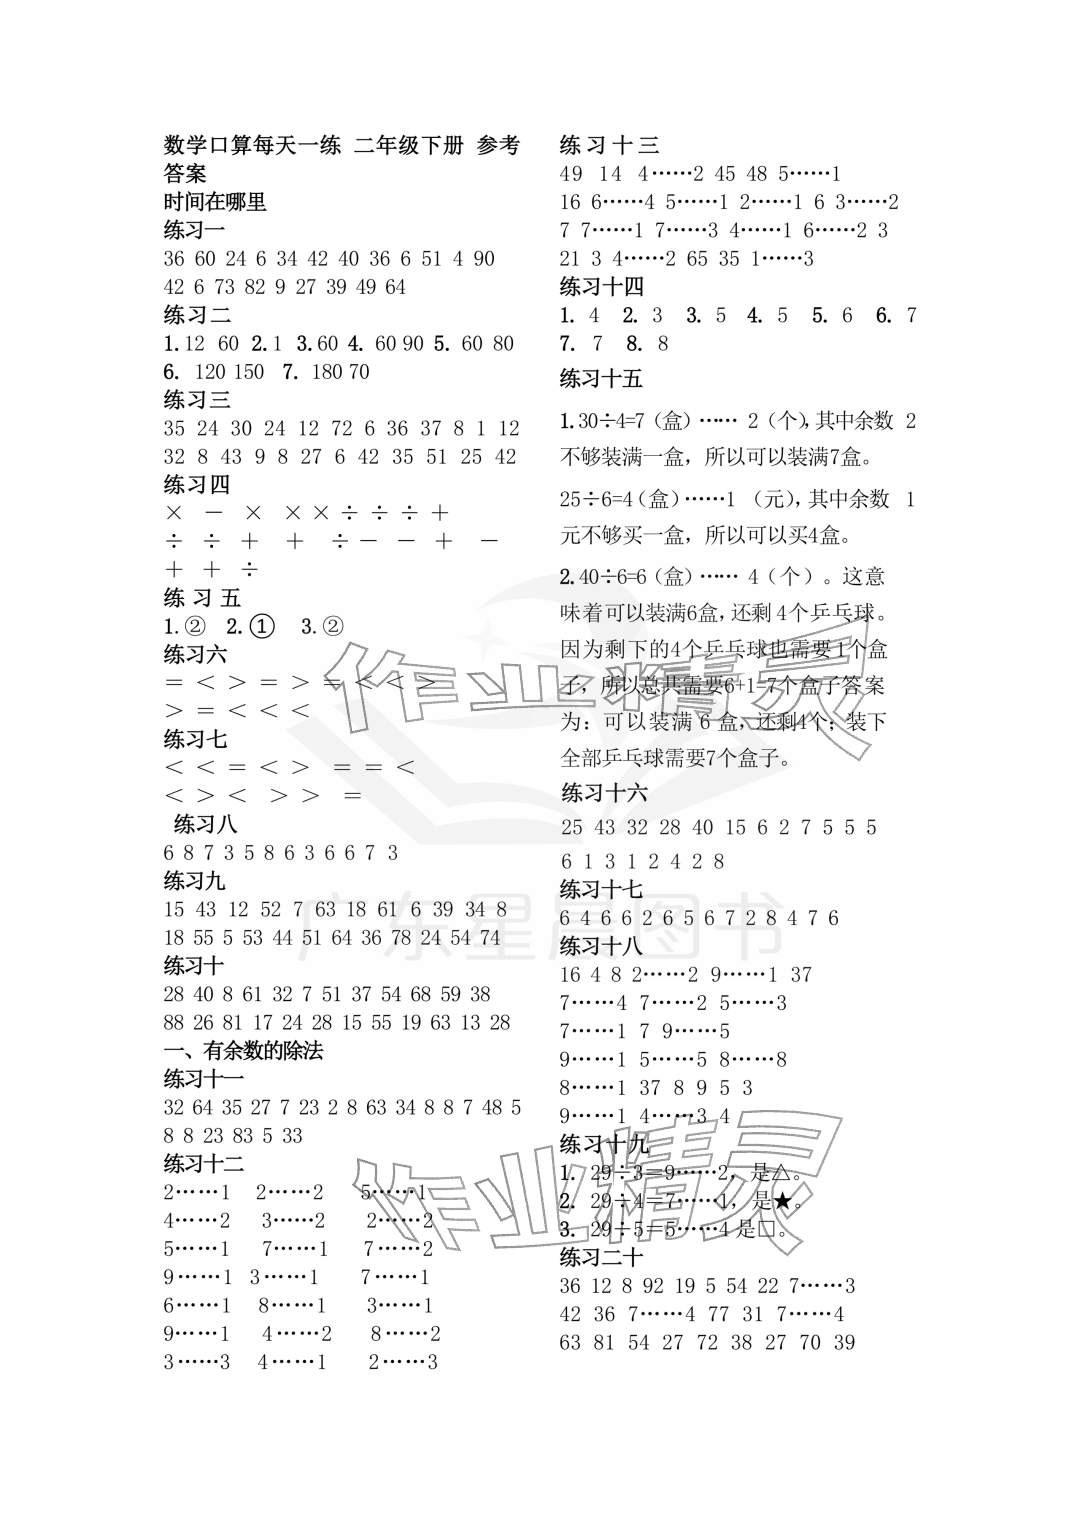 数学口算每天一练 二年级下册 参考
答案
时间在哪里
练习一
36 60 24 6 34 42 40 36 6 51 4 90
42 6 73 82 9 27 39 49 64
练习二
1.12 60 2.1 3.60 4. 60 90 5. 60 80
6. 120 150 7. 180 70
练习三
35 24 30 24 12 72 6 36 37 8 1 12
32 8 43 9 8 27 6 42 35 51 25 42
练习四
× － × × × ÷ ÷ ÷ ＋
÷ ÷ ＋ ＋ ÷ － － ＋ －
＋ ＋ ÷
练习五
1.② 2.① 3.②
练习六
＝ ＜ ＞ ＝ ＞ ＝ ＜ ＜ ＞
＞ ＝ ＜ ＜ ＜
练习七
＜ ＜ ＝ ＜ ＞ ＝ ＝ ＜
＜ ＞ ＜ ＞ ＞ ＝
练习八
6 8 7 3 5 8 6 3 6 6 7 3
练习九
15 43 12 52 7 63 18 61 6 39 34 8
18 55 5 53 44 51 64 36 78 24 54 74
练习十
28 40 8 61 32 7 51 37 54 68 59 38
88 26 81 17 24 28 15 55 19 63 13 28
一、有余数的除法
练习十一
32 64 35 27 7 23 2 8 63 34 8 8 7 48 5
8 8 23 83 5 33
练习十二
2……1 2……2 5……1
4……2 3……2 2……2
5……1 7……1 7……2
9……1 3……1 7……1
6……1 8……1 3……1
9……1 4……2 8……2
3……3 4……1 2……3
练习十三
49 14 4……2 45 48 5……1
16 6……4 5……1 2……1 6 3……2
7 7……1 7……3 4……1 6……2 3
21 3 4……2 65 35 1……3
练习十四
1. 4 2. 3 3. 5 4. 5 5. 6 6. 7
7. 7 8. 8
练习十五
1.30÷4=7（盒）…… 2（个）,其中余数 2
不够装满一盒，所以可以装满7盒。
25÷6=4（盒）……1 （元）,其中余数 1
元不够买一盒，所以可以买4盒。
2.40÷6=6（盒）…… 4（个）。这意
味着可以装满6盒，还剩4个乒乓球。
因为剩下的4个乒乓球也需要1个盒
子，所以总共需要6+1=7个盒子答案
为：可以装满 6 盒，还剩4个；装下
全部乒乓球需要7个盒子。
练习十六
25 43 32 28 40 15 6 2 7 5 5 5
6 1 3 1 2 4 2 8
练习十七
6 4 6 6 2 6 5 6 7 2 8 4 7 6
练习十八
16 4 8 2……2 9……1 37
7……4 7……2 5……3
7……1 7 9……5
9……1 5……5 8……8
8……1 37 8 9 5 3
9……1 4……3 4
练习十九
1. 29÷3＝9……2，是△。
2. 29÷4＝7……1，是★。
3. 29÷5＝5……4 是□。
练习二十
36 12 8 92 19 5 54 22 7……3
42 36 7……4 77 31 7……4
63 81 54 27 72 38 27 70 39
作业精灵
广东星晨图书
作业精灵